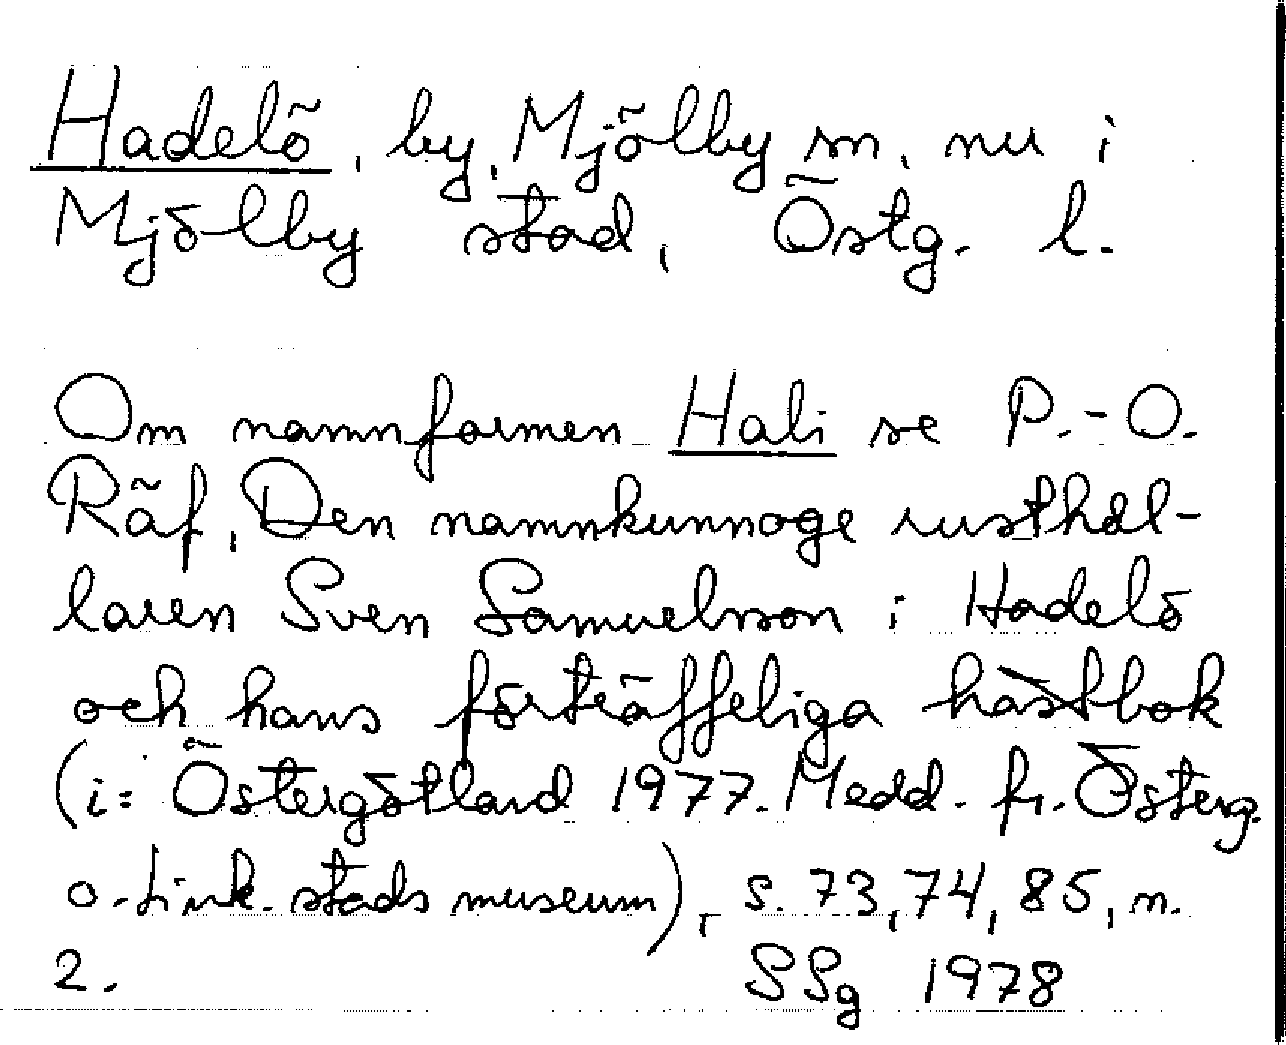 Hadelö, by, Mjölby sn, nu i
Mjölby stad, Östg. l.
Om namnformen Hali se P.-O.
Räf, Den namnkunnoge rusthål-
laren Sven Samuelsson i Hadelö
och hans förträffeliga hästbok
(i: Östergötland 1977. Medd. fr. Österg.
o. Link. stads museum), s. 73, 74, 85, n.
2. SSg 1978